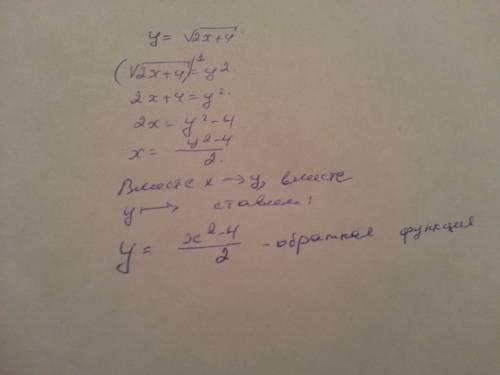 y = √2x+4
(√2x+4)² = y².
2x+4 = y².
2x = y²-4
x = y²-4 / 2.
Вместе x → y, вместе
y → ставием:
y = x²-4 / 2 - обратная функция.